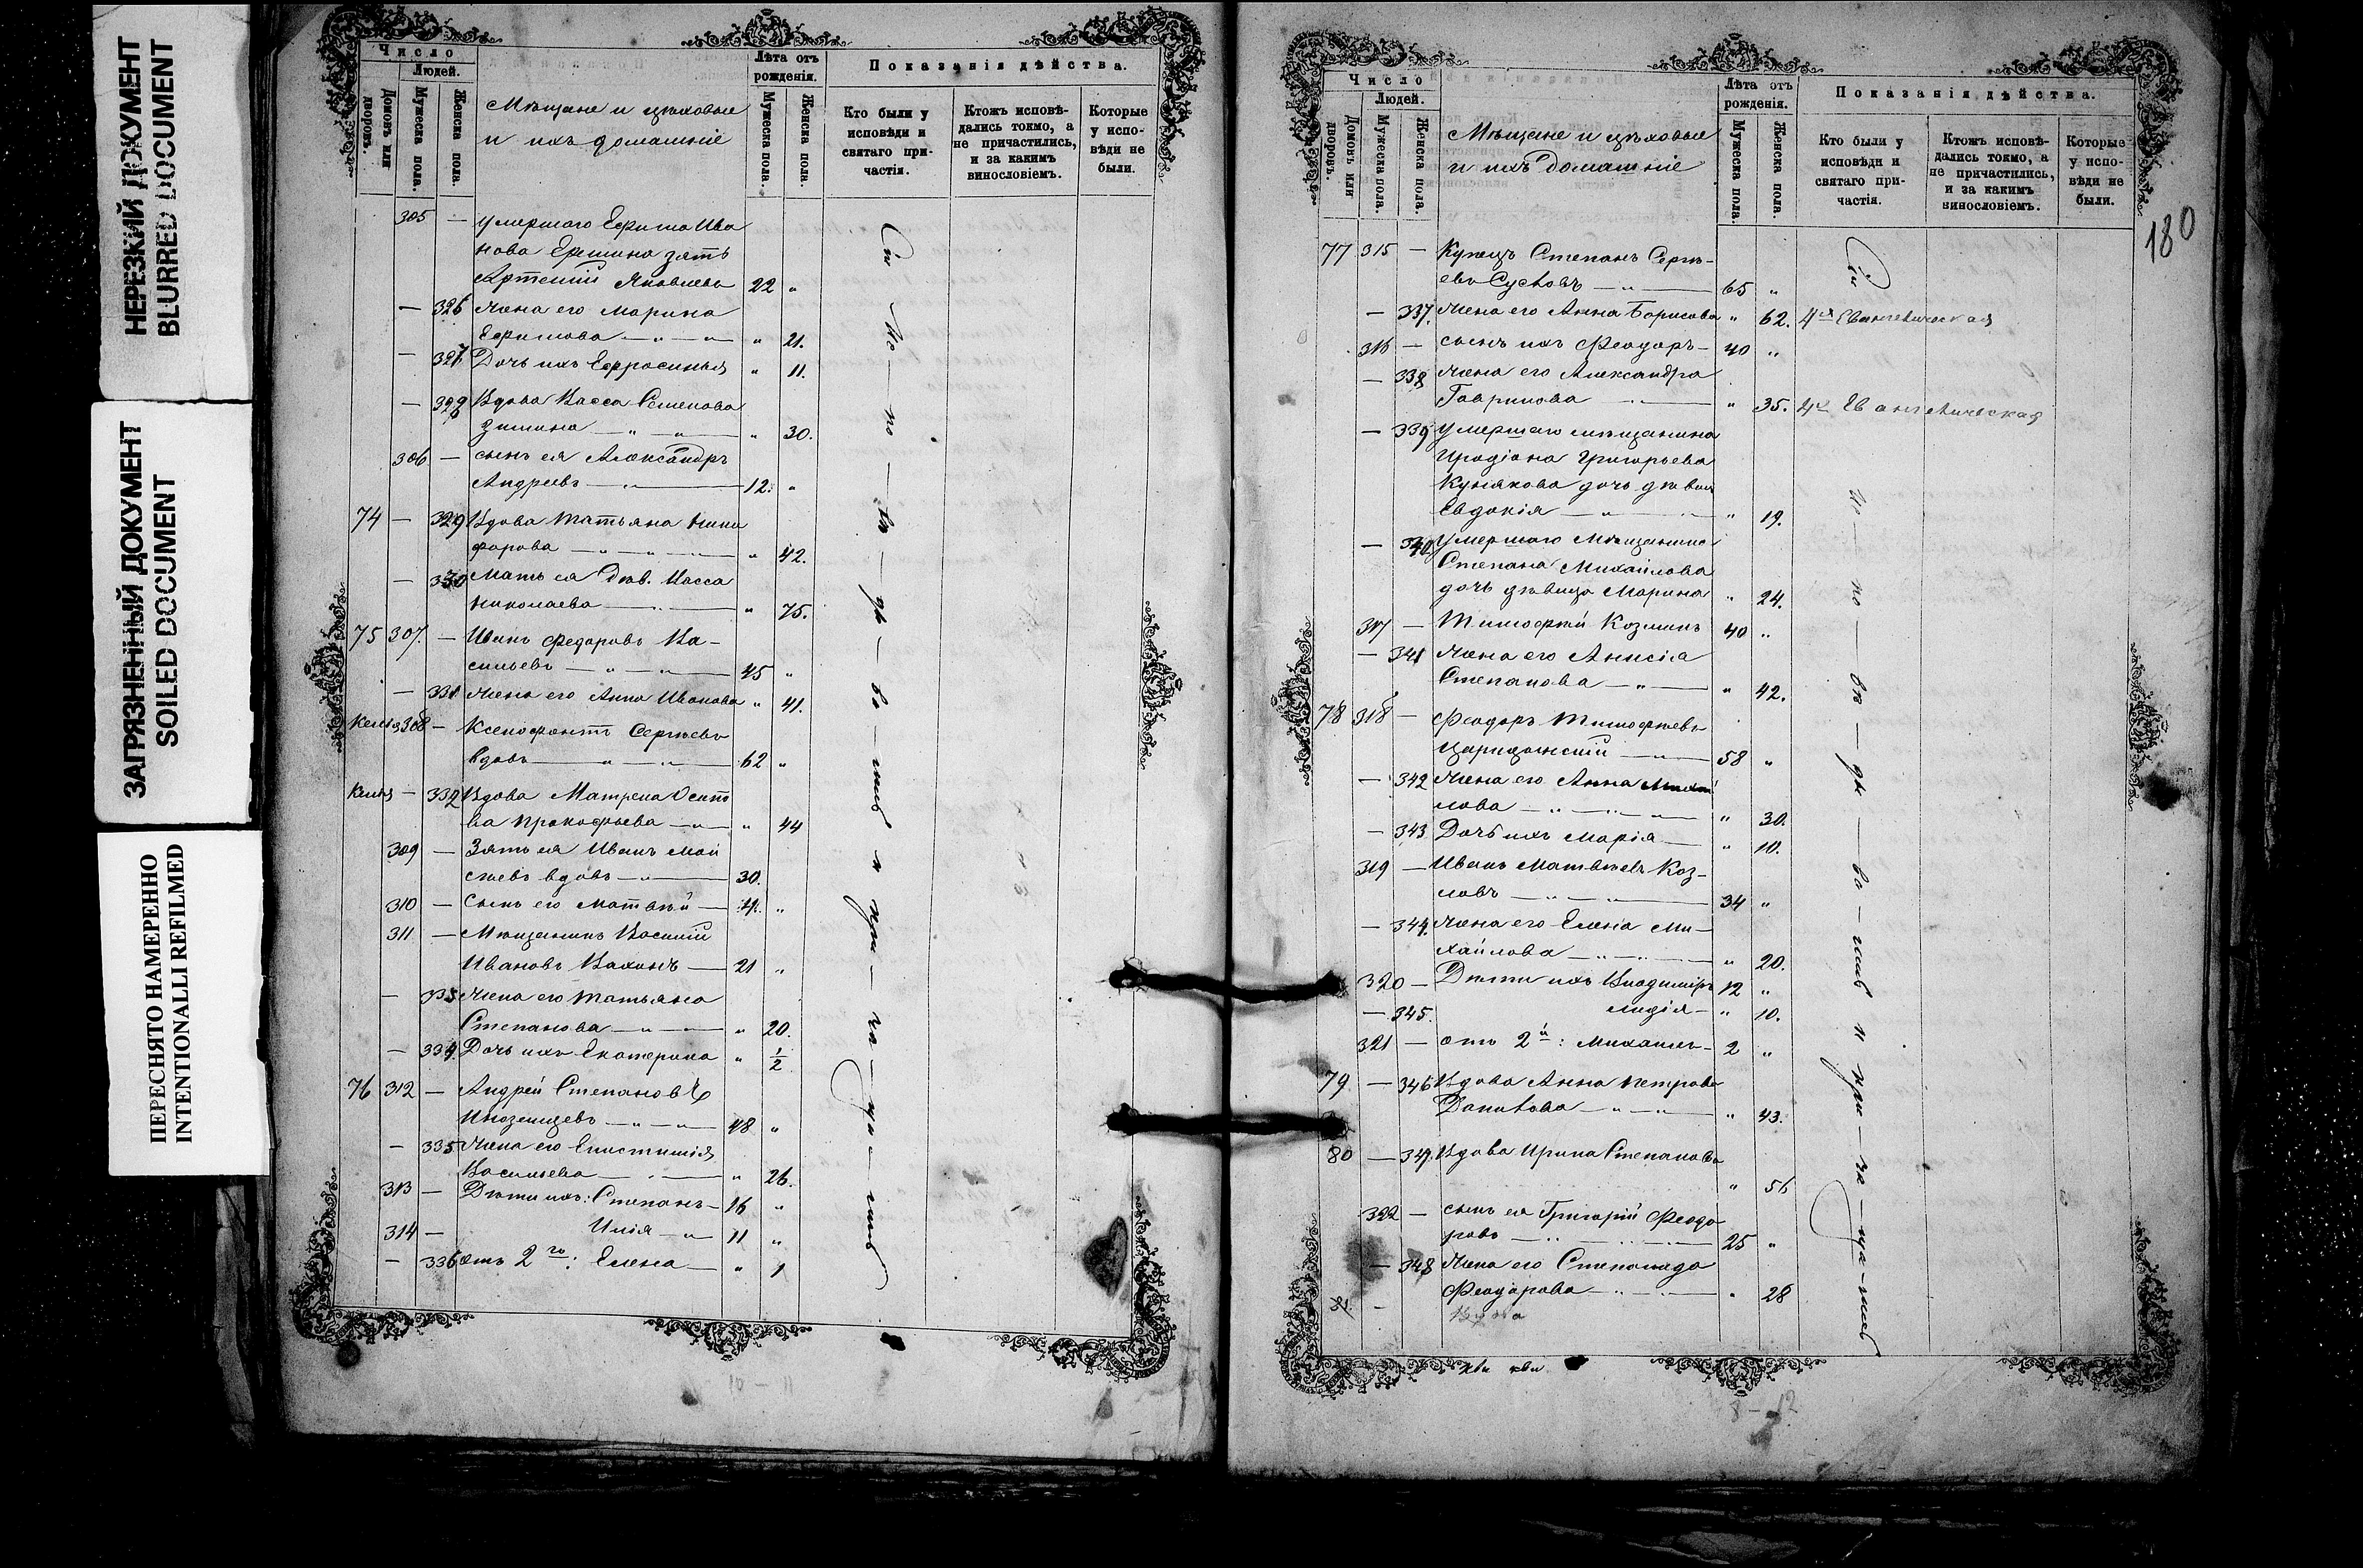 НЕРЕЗКИЙ ДОКУМЕНТ
BLURRED DOCUMENT
ЗАГРЯЗНЕННЫЙ ДОКУМЕНТ
SOILED DOCUMENT
ПЕРЕСНЯТО НАМЕРЕННО
INTENTIONALLI REFILMED
Число
Людей.
Домовъ или дворовъ.
Мужеска пола.
Женска пола.
Мѣщане и цѣховые
и ихъ домашніе
Лѣта отъ рожденія.
Мужеска пола.
Женска пола.
Показанія дѣйства.
Кто были у исповѣди и святаго причастія.
Ктожъ исповѣдались токмо, а не причастились, и за какимъ винословіемъ.
Которые у исповѣди не были.
305 — умершаго Ефима Ива
нова Ершина зять
Артемій Яковлевъ 22 "
— 326 Жена его Марина
Ефимова — " — " — " 21.
— 327 Дочь ихъ Ефросинья " 11.
— 328 Вдова Васса Семенова
Зимина — " — " — " 30.
306 — сынъ ея Александръ
Андреевъ — " — 12. "
74 — 329 Вдова Татьяна Ники
форова — " — " — " 42.
— 330 Мать ея Вдов. Васса
Николаева — " — " 75.
75 307. — Иванъ Федоровъ Ва-
сильевъ — " — " — 45 "
— 331 Жена его Анна Иванова " 41.
Келья 308 — Ксенофонтъ Сергѣевъ
вдовъ — " — " — 62 "
Келья — 332 Вдова Матрена Осипо
ва Прокофьева — " — " 44
309 — Зять ея Иванъ Мои
сѣевъ вдовъ — " — 30.
310 — Сынъ его Матвѣй — 4. "
311 — Мѣщанинъ Василій
Ивановъ — 21 "
— 333 Жена его Татьяна
Степанова — " — " — " 20.
— 334. Дочь ихъ Екатерина " 1/2
76 312 — Андрей Степановъ
Иноземцевъ — " — " — 48 "
— 335 Жена его Епистимія
Васильева — " — " 26.
313 — Дѣти ихъ: Степанъ — 16 "
314 — Илія — " — 11 "
— 336 отъ 2го: Елена — " 1
Сіи Ис — по — вѣ — ды — ва — лись и при — ча — ща — лись
Число
Людей.
Домовъ или дворовъ.
Мужеска пола.
Женска пола.
Мѣщане и цѣховые
и ихъ домашніе
Лѣта отъ рожденія.
Мужеска пола.
Женска пола.
Показанія дѣйства.
Кто были у исповѣди и святаго причастія.
Ктожъ исповѣдались токмо, а не причастились, и за какимъ винословіемъ.
Которые у исповѣди не были.
180
77 315 — Купецъ Степанъ Сергѣ-
евъ Сусловъ — " — 65 "
— 337. Жена его Анна Борисова " 62.
316 — сынъ ихъ Феодоръ — 40 "
— 338 Жена его Александра
Гаврилова — " — " 35.
— 339 умершаго мѣщанина
Иродіона Григорьева
Кунякова дочь дѣвица
Евдокія — " — " 19.
— 340 умершаго Мѣщанина
Степана Михайлова
дочь дѣвица Марина " 24.
317 — Тимофѣй Козминъ 40 "
— 341 Жена его Анисія
Степанова — " — " 42.
78 318 — Феодоръ Тимофѣевъ
— " — 58 "
— 342 Жена его Анна Михай
лова — " — " — " 30.
— 343 Дочь ихъ Марія — " 10.
319 — Иванъ Матвѣевъ Коз-
ловъ — " — " — 34 "
— 344. Жена его Елена Ми-
хайлова — " — " — " 20.
320 — Дѣти ихъ Владиміръ 12 "
— 345. Лидія — " 10.
321 — отъ 2й: Михаилъ — 2 "
79. — 346 Вдова Анна Петрова
Данилова — " — " — " 43.
80 — 347. Вдова Ирина Степанова
" 56
322 — сынъ ея Григорій Феодо
ровъ — " — " — 25 "
— 348 Жена его Степанида
Феодорова — " — " — " 28
81. — Вдова
Сіи ис — по — вѣ — ды — ва — лись и при — ча — ща — лись